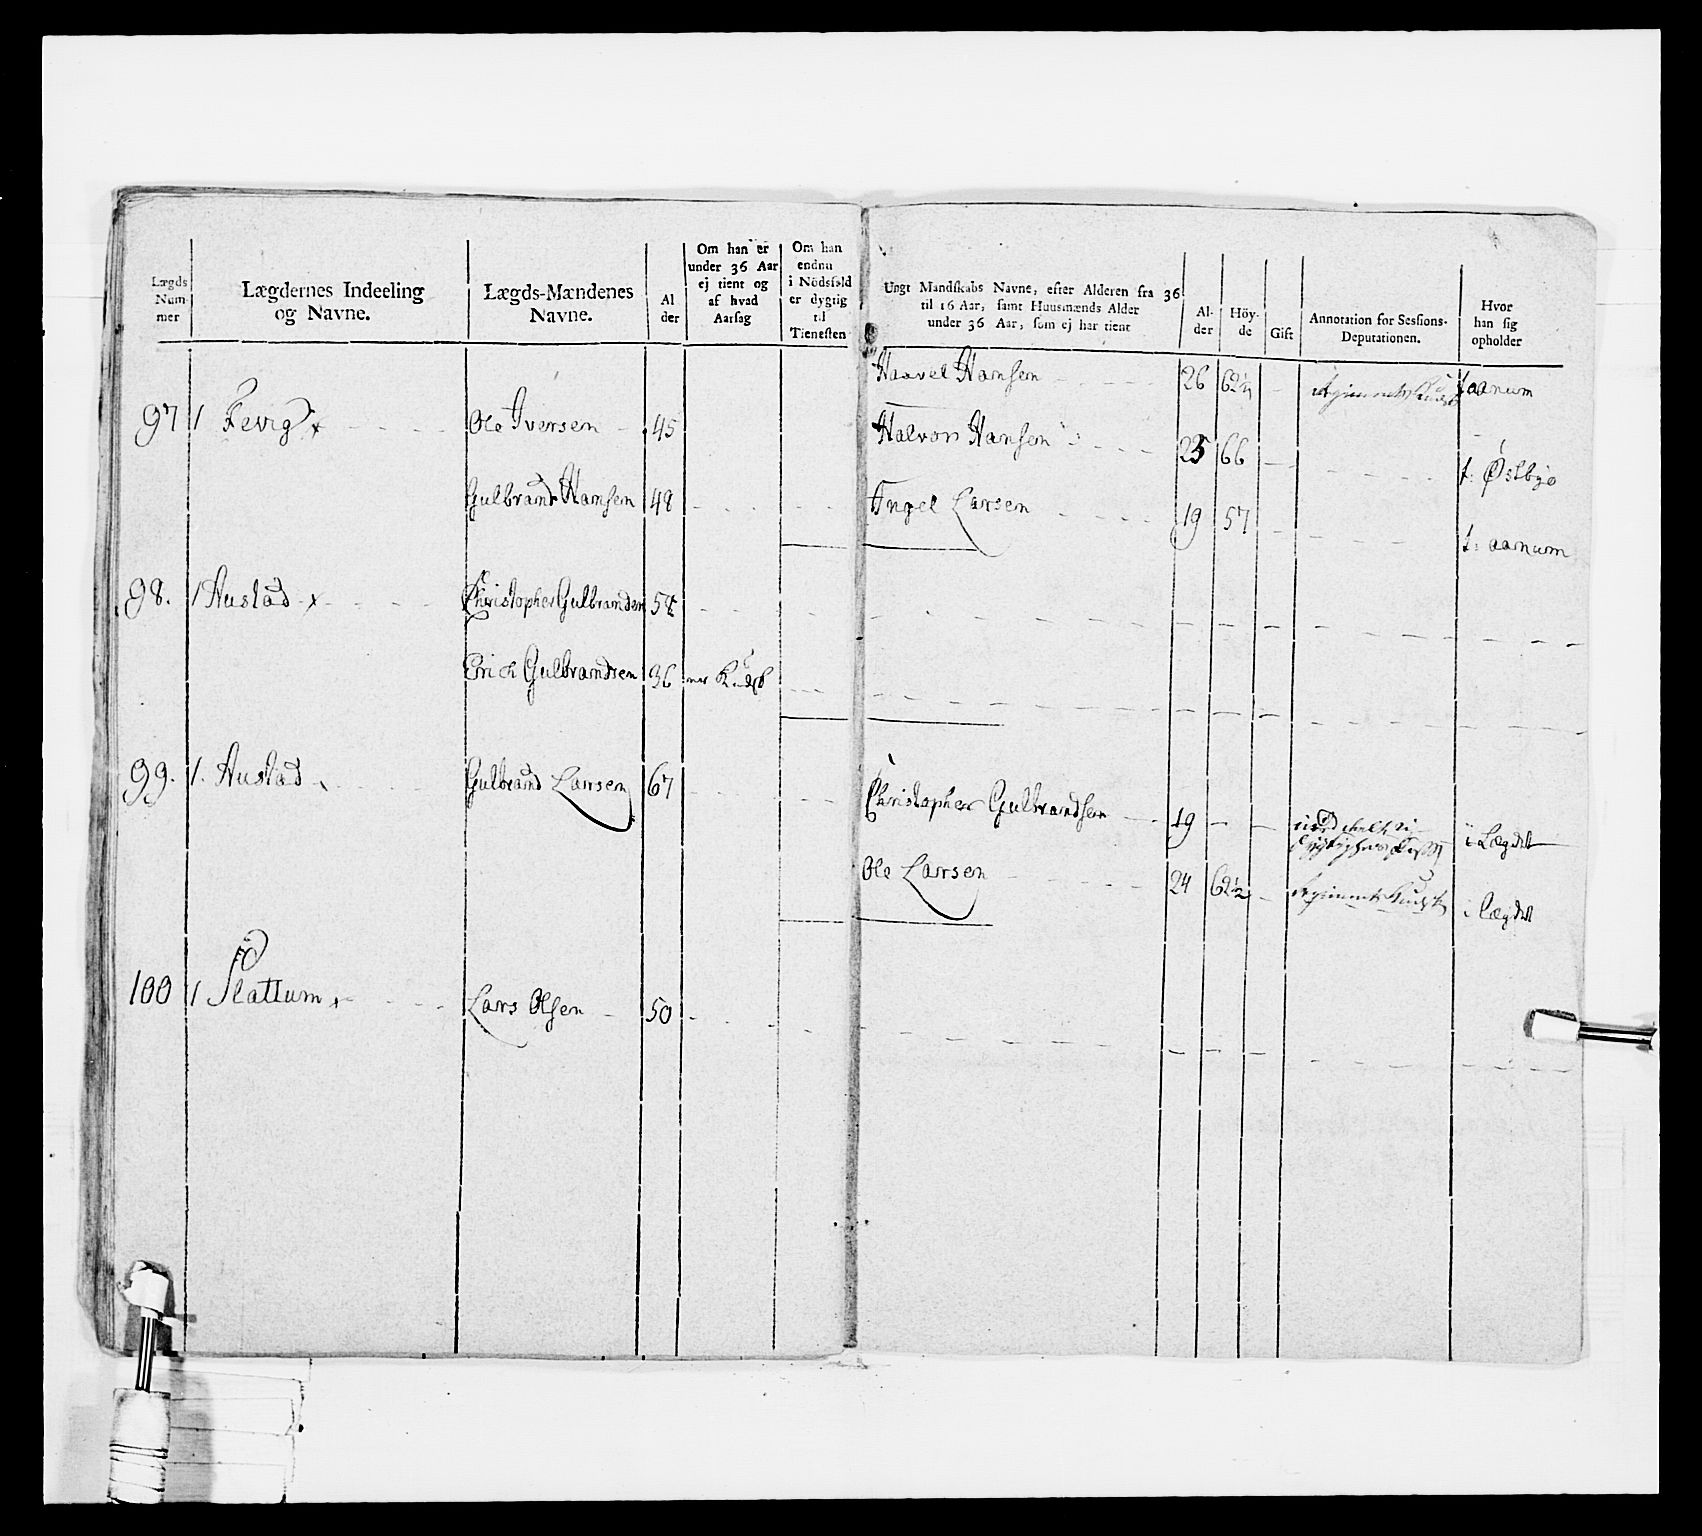 Lægds Num- mer
Lægdernes Indeeling og Navne.
Lægds-Mændenes Navne.
Al der
Om han er under 36 Aar ej tient og af hvad Aarsag
Om han endnu i Nödsfald er dygtig til Tienesten
Ungt Mandskabs Navne, efter Alderen fra 36 til 16 Aar, samt Huusmænds Alder under 36 Aar, som ej har tient
Al- der
Höy- de
Gift
Annotation for Sessions- Deputationen.
Hvor han sig opholder
Haavel Hansen 26 62½ aanum
97 1 Fevig Ole Iversen 45
Halvon Hansen 25 66 i: Østbye
Gulbrand Hansen 48
Engel Larsen 19 57 i: aanum
98. 1 Austad Christopher Gulbrandsen 58
Erich Gulbrandsen 36
99. 1. Austad Gulbrand Larsen 67
Christopher Gulbrandsen 19 i Lægdet
Ole Larsen 24 62½ i lægdet
100 1 Slattum Lars Olsen 50